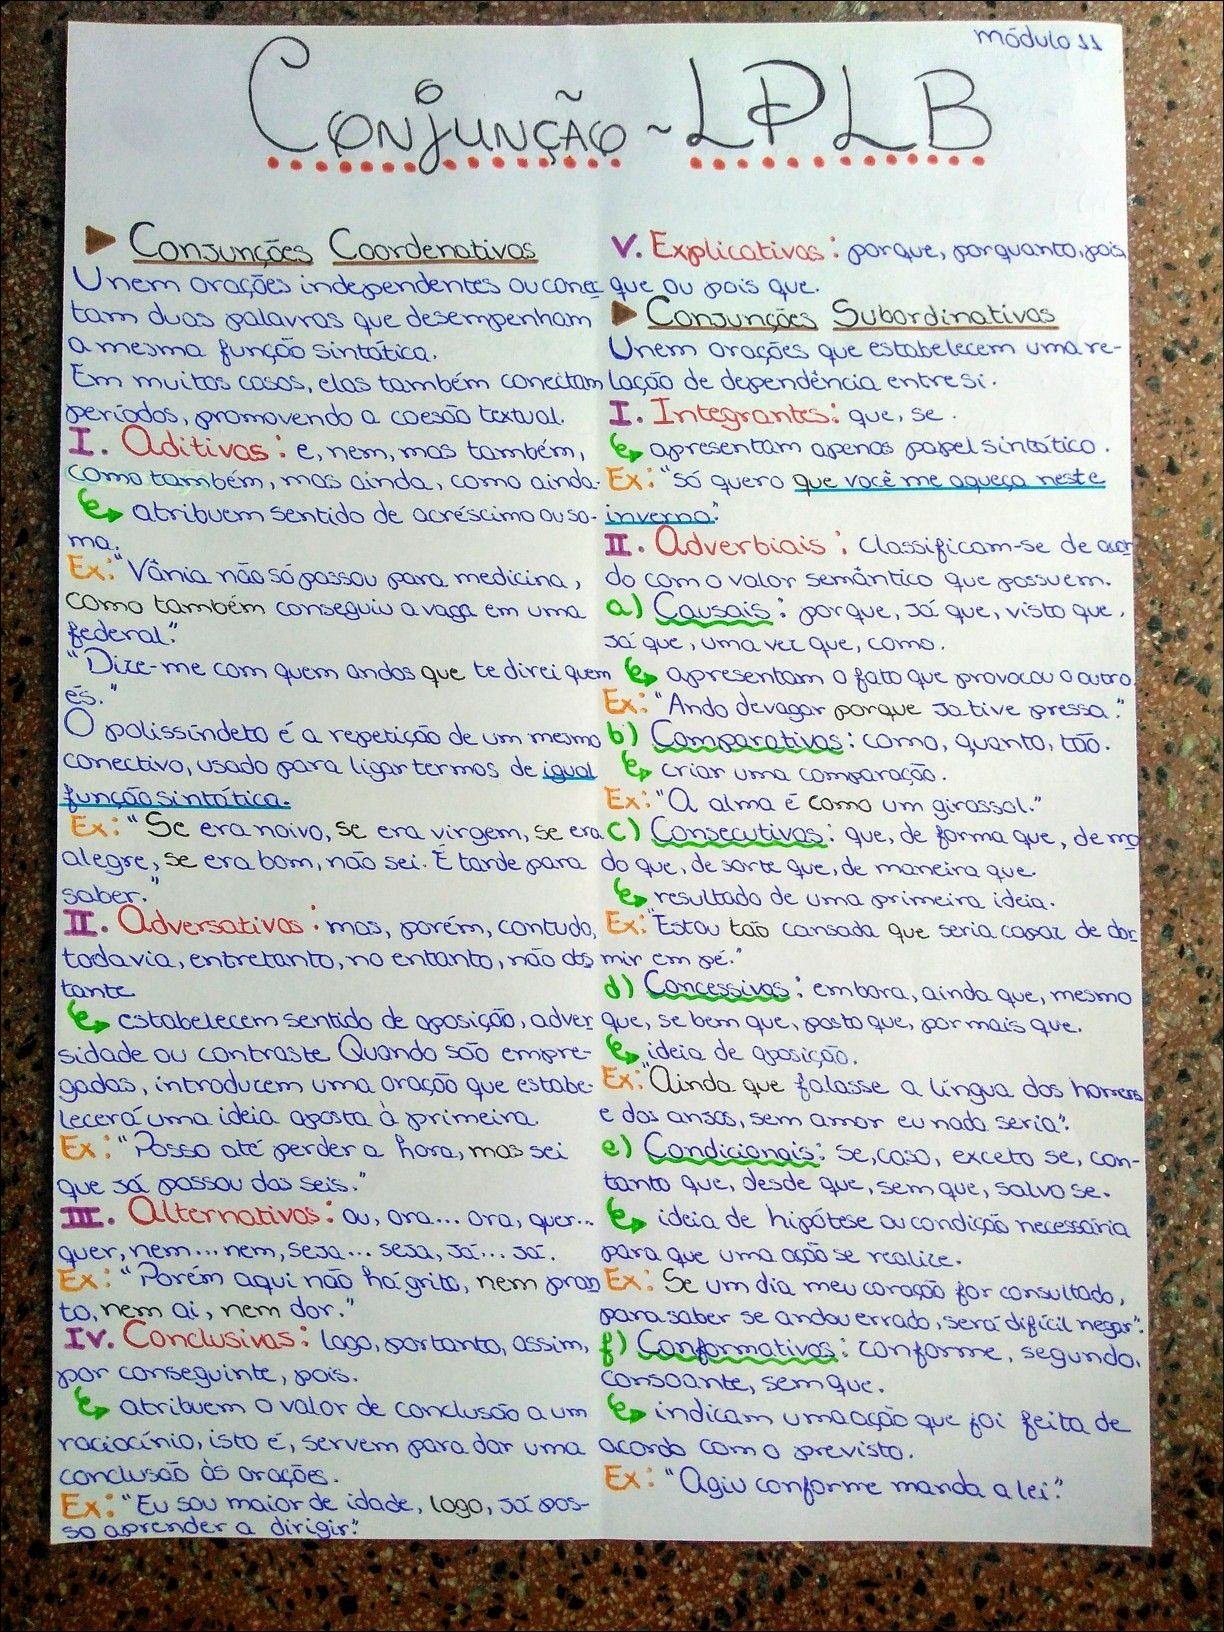 módulo 11
Conjunção ~ LPLB
Conjunções Coordenativas
Unem orações independentes ou conec
tam duas palavras que desempenham
a mesma função sintática.
Em muitos casos, elas também conectam
períodos, promovendo a coesão textual.
I. Aditivas: e, nem, mas também,
como também, mas ainda, como ainda.
atribuem sentido de acréscimo ou so-
ma.
Ex: "Vânia não só passou para medicina,
como também conseguiu a vaga em uma
federal."
"Dize-me com quem andas que te direi quem
és."
O polissíndeto é a repetição de um mesmo
conectivo, usado para ligar termos de igual
função sintática.
Ex: "Se era noivo, se era virgem, se era
alegre, se era bom, não sei. É tarde para
saber."
II. Adversativas: mas, porém, contudo,
todavia, entretanto, no entanto, não obs
tante
estabelecem sentido de oposição, adver
sidade ou contraste Quando são empre-
gadas, introduzem uma oração que estabe-
lecerá uma ideia oposta à primeira.
Ex: "Posso até perder a hora, mas sei
que já passou das seis."
III. Alternativas: ou, ora... ora, quer...
quer, nem... nem, seja... seja, já... já.
Ex: "Porém aqui não há grito, nem pran
to, nem ai, nem dor."
IV. Conclusivas: logo, portanto, assim,
por conseguinte, pois.
atribuem o valor de conclusão a um
raciocínio, isto é, servem para dar uma
conclusão às orações.
Ex: "Eu sou maior de idade, logo, já pos-
so aprender a dirigir."
V. Explicativas: porque, porquanto, pois
que ou pois que.
Conjunções Subordinativas
Unem orações que estabelecem uma re-
lação de dependência entre si.
I. Integrantes: que, se.
apresentam apenas papel sintático.
Ex: "Só quero que você me aqueça neste
inverno."
II. Adverbiais: classificam-se de acor
do com o valor semântico que possuem.
a) Causais: porque, já que, visto que,
já que, uma vez que, como.
apresentam o fato que provocou o outro
Ex: "Ando devagar porque já tive pressa."
b) Comparativas: como, quanto, tão.
criar uma comparação.
Ex: "A alma é como um girassol."
c) Consecutivas: que, de forma que, de mo
do que, de sorte que, de maneira que.
resultado de uma primeira ideia.
Ex: "Estou tão cansada que seria capaz de dor
mir em pé."
d) Concessivas: embora, ainda que, mesmo
que, se bem que, posto que, por mais que.
ideia de oposição.
Ex: "Ainda que falasse a língua dos homens
e dos anjos, sem amor eu nada seria".
e) Condicionais: se, caso, exceto se, con-
tanto que, desde que, sem que, salvo se.
ideia de hipótese ou condição necessária
para que uma ação se realize.
Ex: Se um dia meu coração for consultado,
para saber se andou errado, será difícil negar".
f) Conformativas: conforme, segundo,
consoante, sem que.
indicam uma ação que foi feita de
acordo com o previsto.
Ex: "Agiu conforme manda a lei."